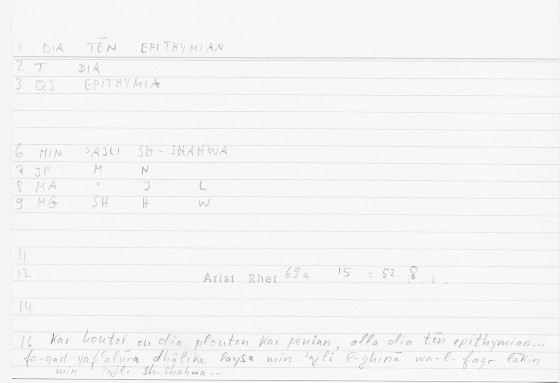 1 DIA TĒN EPITHYMIAN
2 T DIA
3 QJ EPITHYMIA
6 MIN ʾAJLI SH-SHAHWA
7 JP M N
8 MA ʾ J L
9 MG SH H W
11
12 Arist Rhet 69a 15 : 52 8
14
16 kai houtoi ou dia plouton kai penian, alla dia tēn epithymian...
fa-qad yafʿalūna dhālika laysa min ʾajli l-ghinā wa-l-faqr lākin
min ʾajli sh-shahwa...